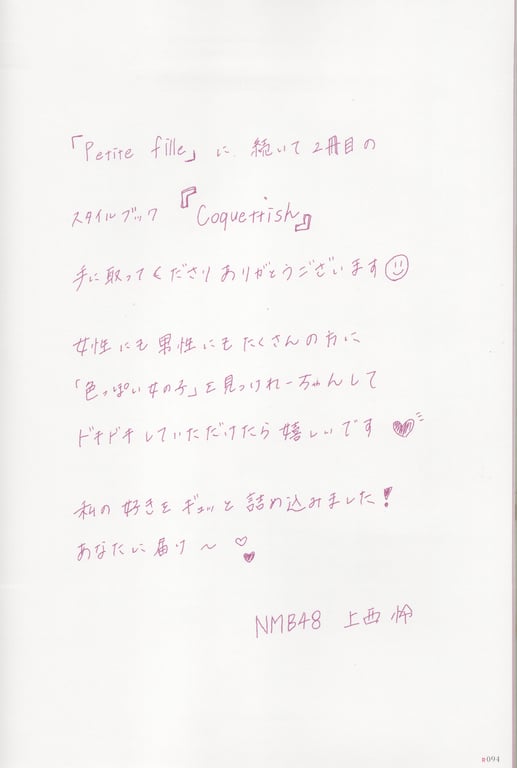 「Petite fille」に 続いて 2冊目の
スタイルブック『Coquettish』
手に取ってくださりありがとうございます
女性にも男性にもたくさんの方に
「色っぽい女の子」を見つけれーちゃんして
ドキドキしていただけたら嬉しいです
私の好きをギュッと詰め込みました!
あなたに届け〜
NMB48 上西怜
094